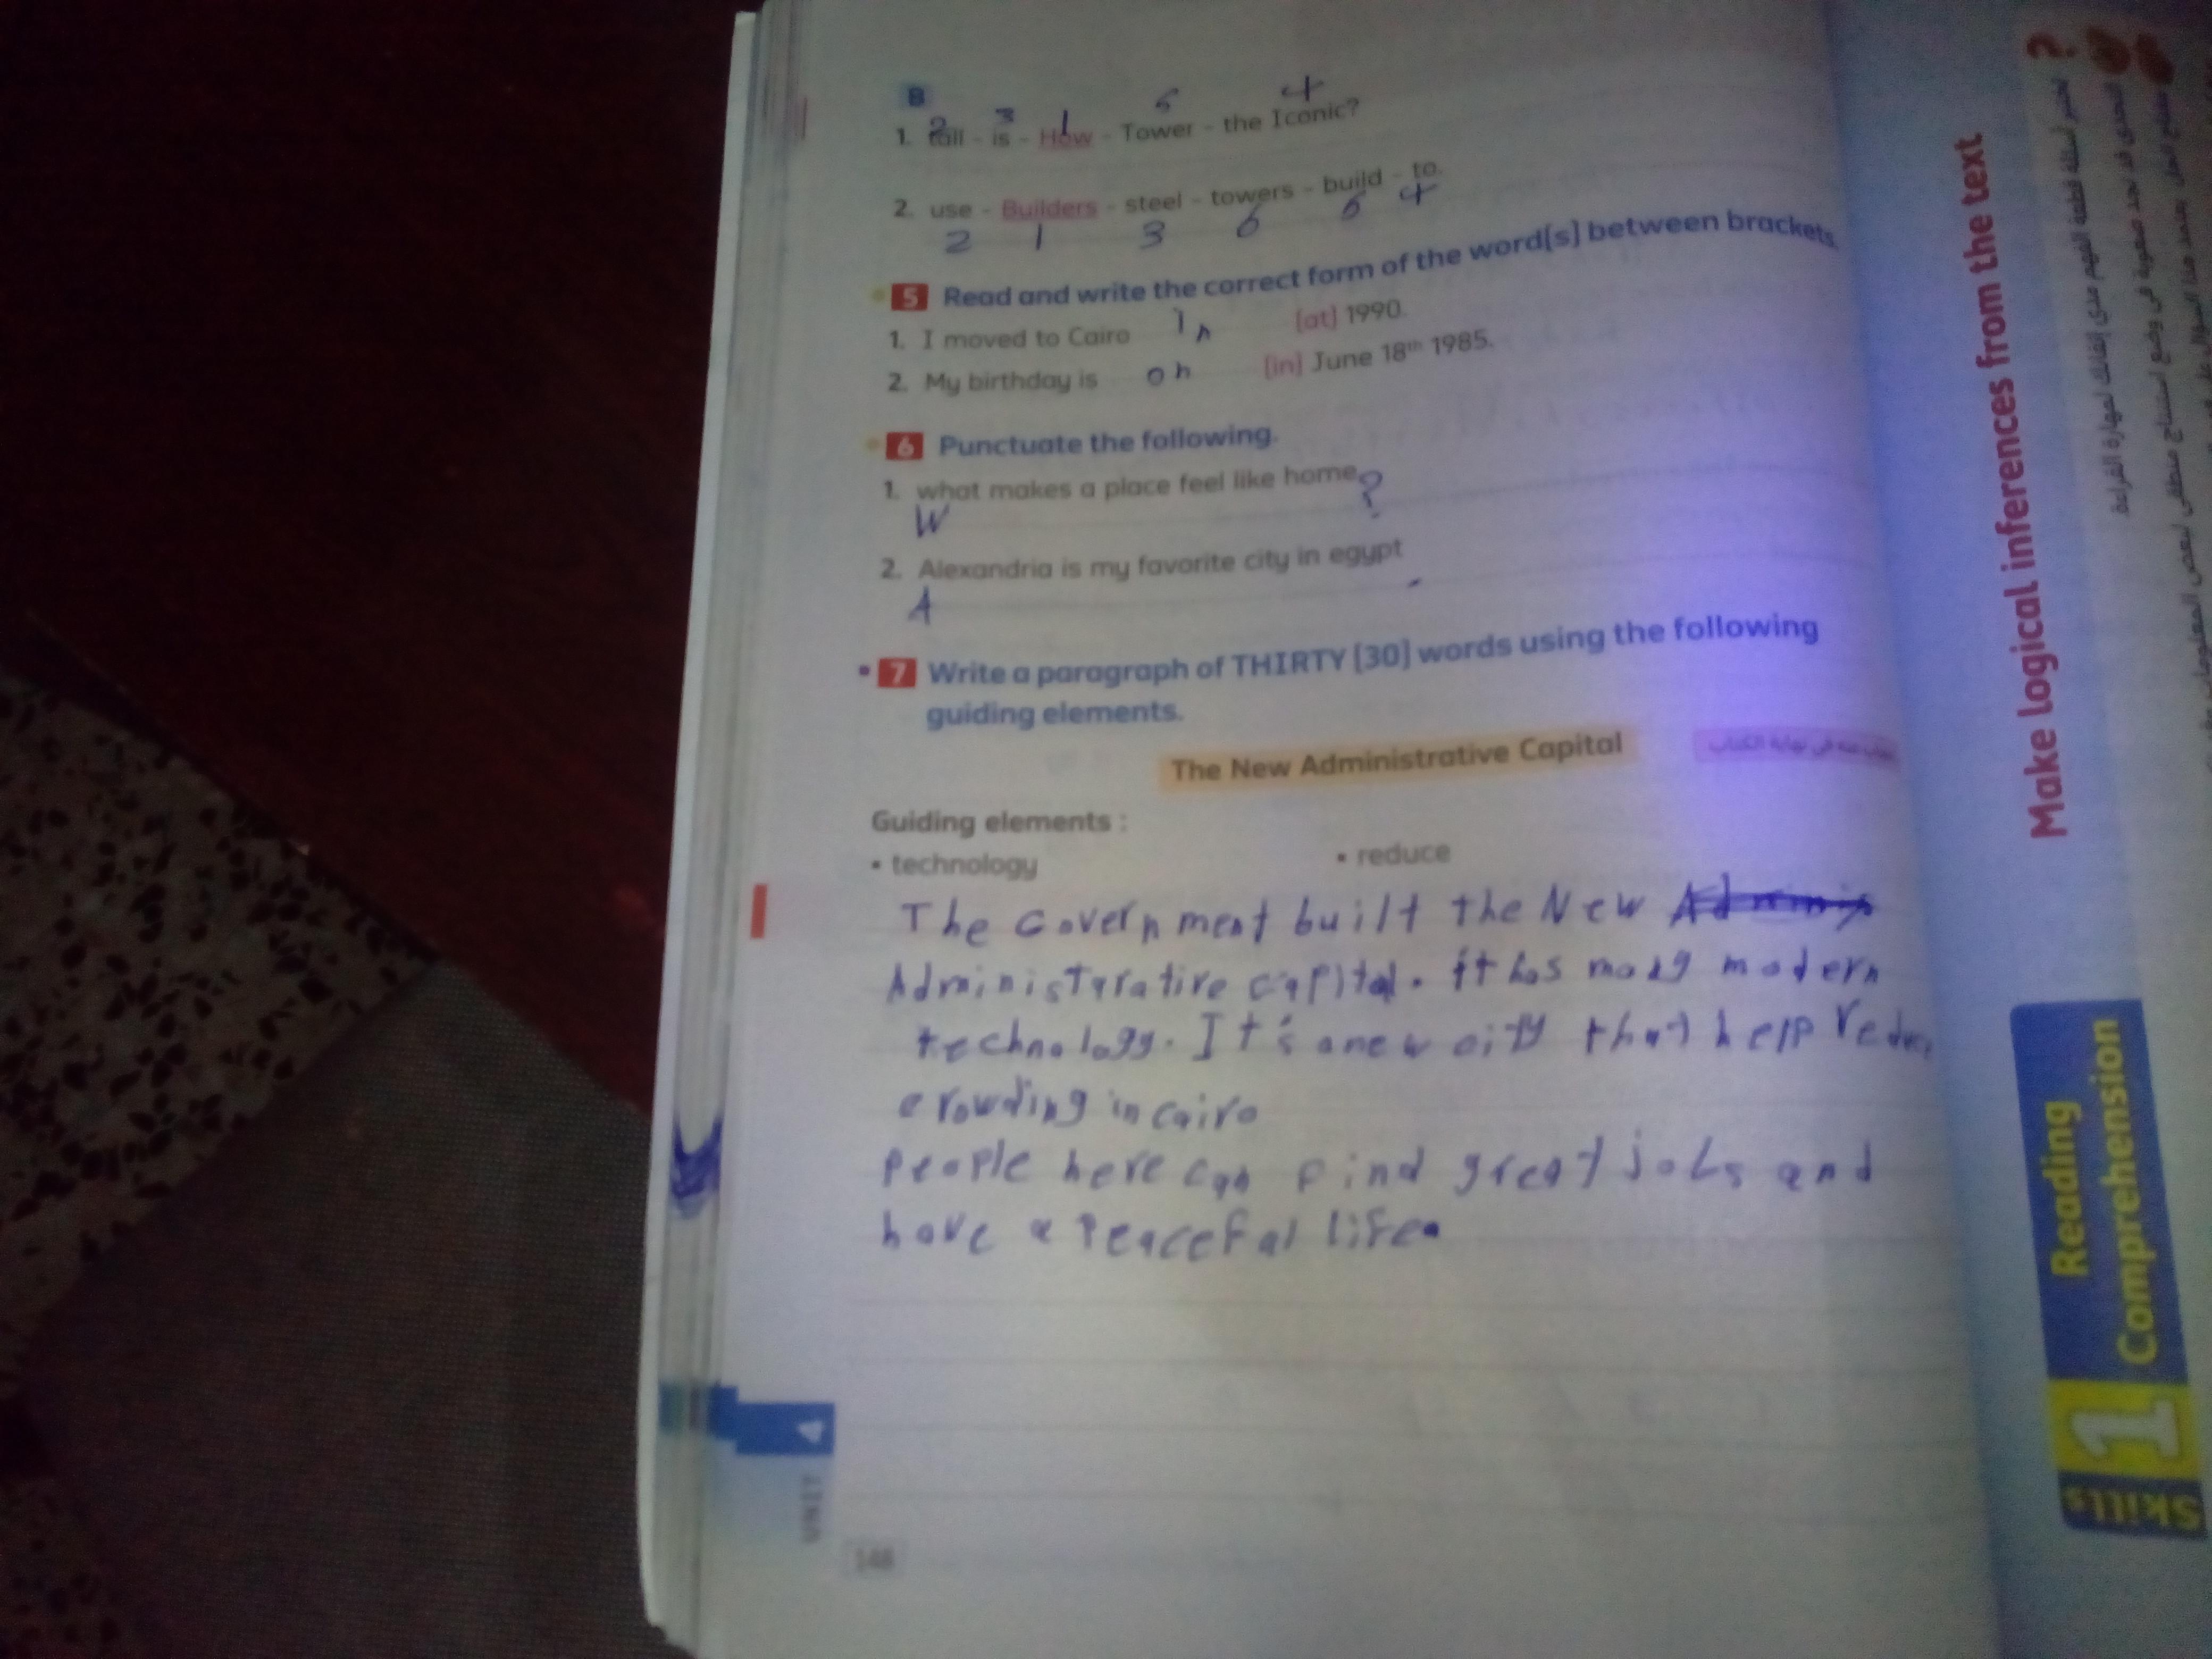 B
2 3 1 5 4
1. tall - is - How - Tower - the Iconic?
2. use - Builders - steel - towers - build - to.
2 1 3 6 5 4
5 Read and write the correct form of the word(s) between brackets.
1. I moved to Cairo In (at) 1990.
2. My birthday is on (in) June 18th 1985.
6 Punctuate the following.
1. what makes a place feel like home ?
W
2. Alexandria is my favorite city in egypt .
A
7 Write a paragraph of THIRTY (30) words using the following
guiding elements.
The New Administrative Capital
Guiding elements :
• technology • reduce
The Government built the New
Administarative capital. it has many modern
technology. It's a new city that help
crowding in cairo
people here can find great jobs and
have a peaceful life.
UNIT 4
148
Skills 1 Reading
Comprehension
Make logical inferences from the text